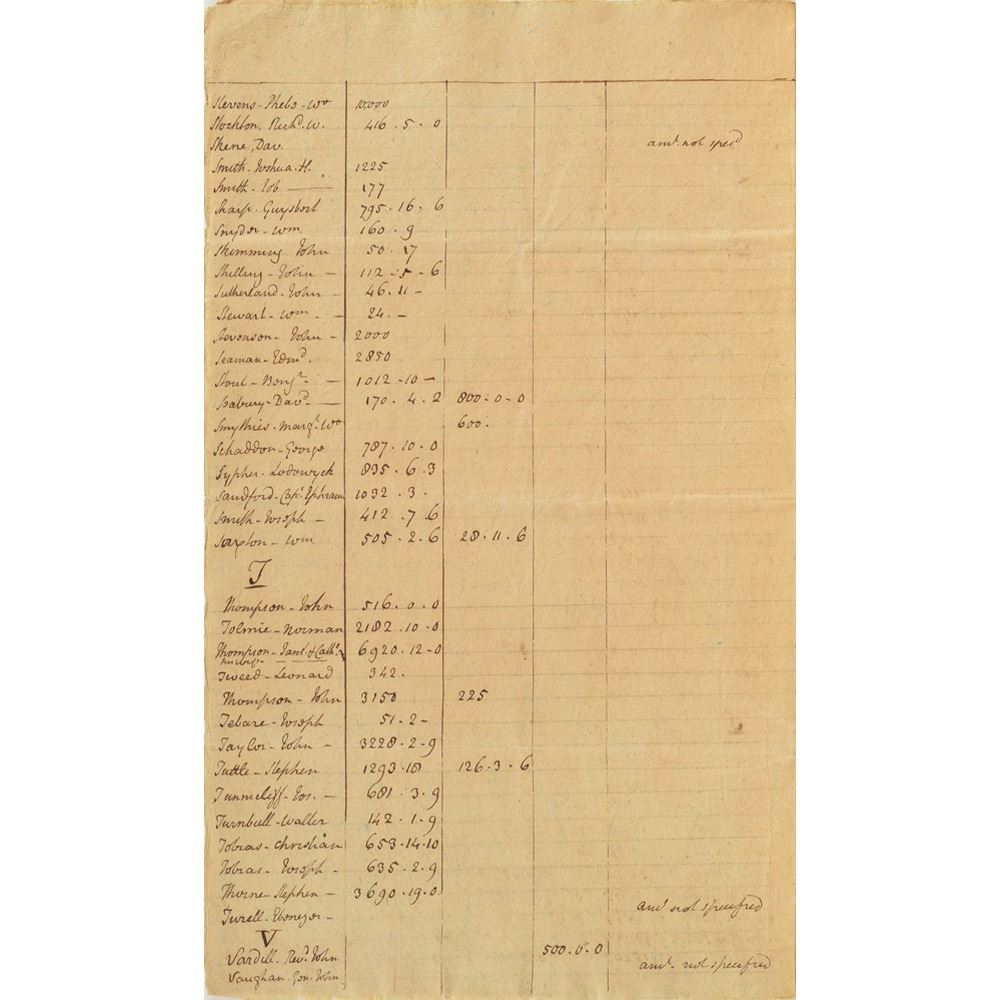 Stevens - Phebe - Wo 10,000
Stockton, Richd. W. 416 . 5 . 0
Skene, Dav. amt. not specd
Smith - Joshua - H. 1225
Smith - Job — 177
Sharp - Guysbert 795 . 16 . 6
Snyder - Wm. 160 . 9
Skimming John 50 . 17
Shilling - John - 112 - 5 - 6
Sutherland - John - 46 . 11 -
Stewart - Wm. - 24 . -
Stevenson - John - 2000
Seaman - Edmd. 2850
Stout - Benjn. — 1012 - 10 -
Seabury - Davd. — 170 . 4 . 2 800 - 0 - 0
Smythies - Margt. Wo 600 .
Schaddon - George 787 . 10 . 0
Sypher - Lodowyck 835 . 6 . 3
Sandford - Capt. Ephraim 1032 . 3 .
Smith - Joseph - 412 . 7 . 6
Saxton - Wm. 505 . 2 . 6 28 . 11 . 6
T
Thompson - John 516 . 0 . 0
Tolmie - Norman 2182 . 10 . 0
Thompson - Jant. & Cathe. 6920 . 12 - 0
Tweed - Leonard 342 .
Thompson - John 3150 225
Tebare - Joseph 51 . 2 -
Taylor - John - 3228 . 2 - 9
Tuttle - Stephen 1293 . 18 126 . 3 . 6
Tunnicliff - Jos. - 681 . 3 . 9
Turnbull - Walter 142 . 1 . 9
Tobias - Christian 653 . 14 . 10
Tobias - Joseph - 635 . 2 . 9
Thorne - Stephen - 3690 . 19 . 0
Turell - Ebenezer - amt. not specified
V
Vardill - Revd. John 500 . 0 . 0
Vaughan - Jon. John. amt. not specified